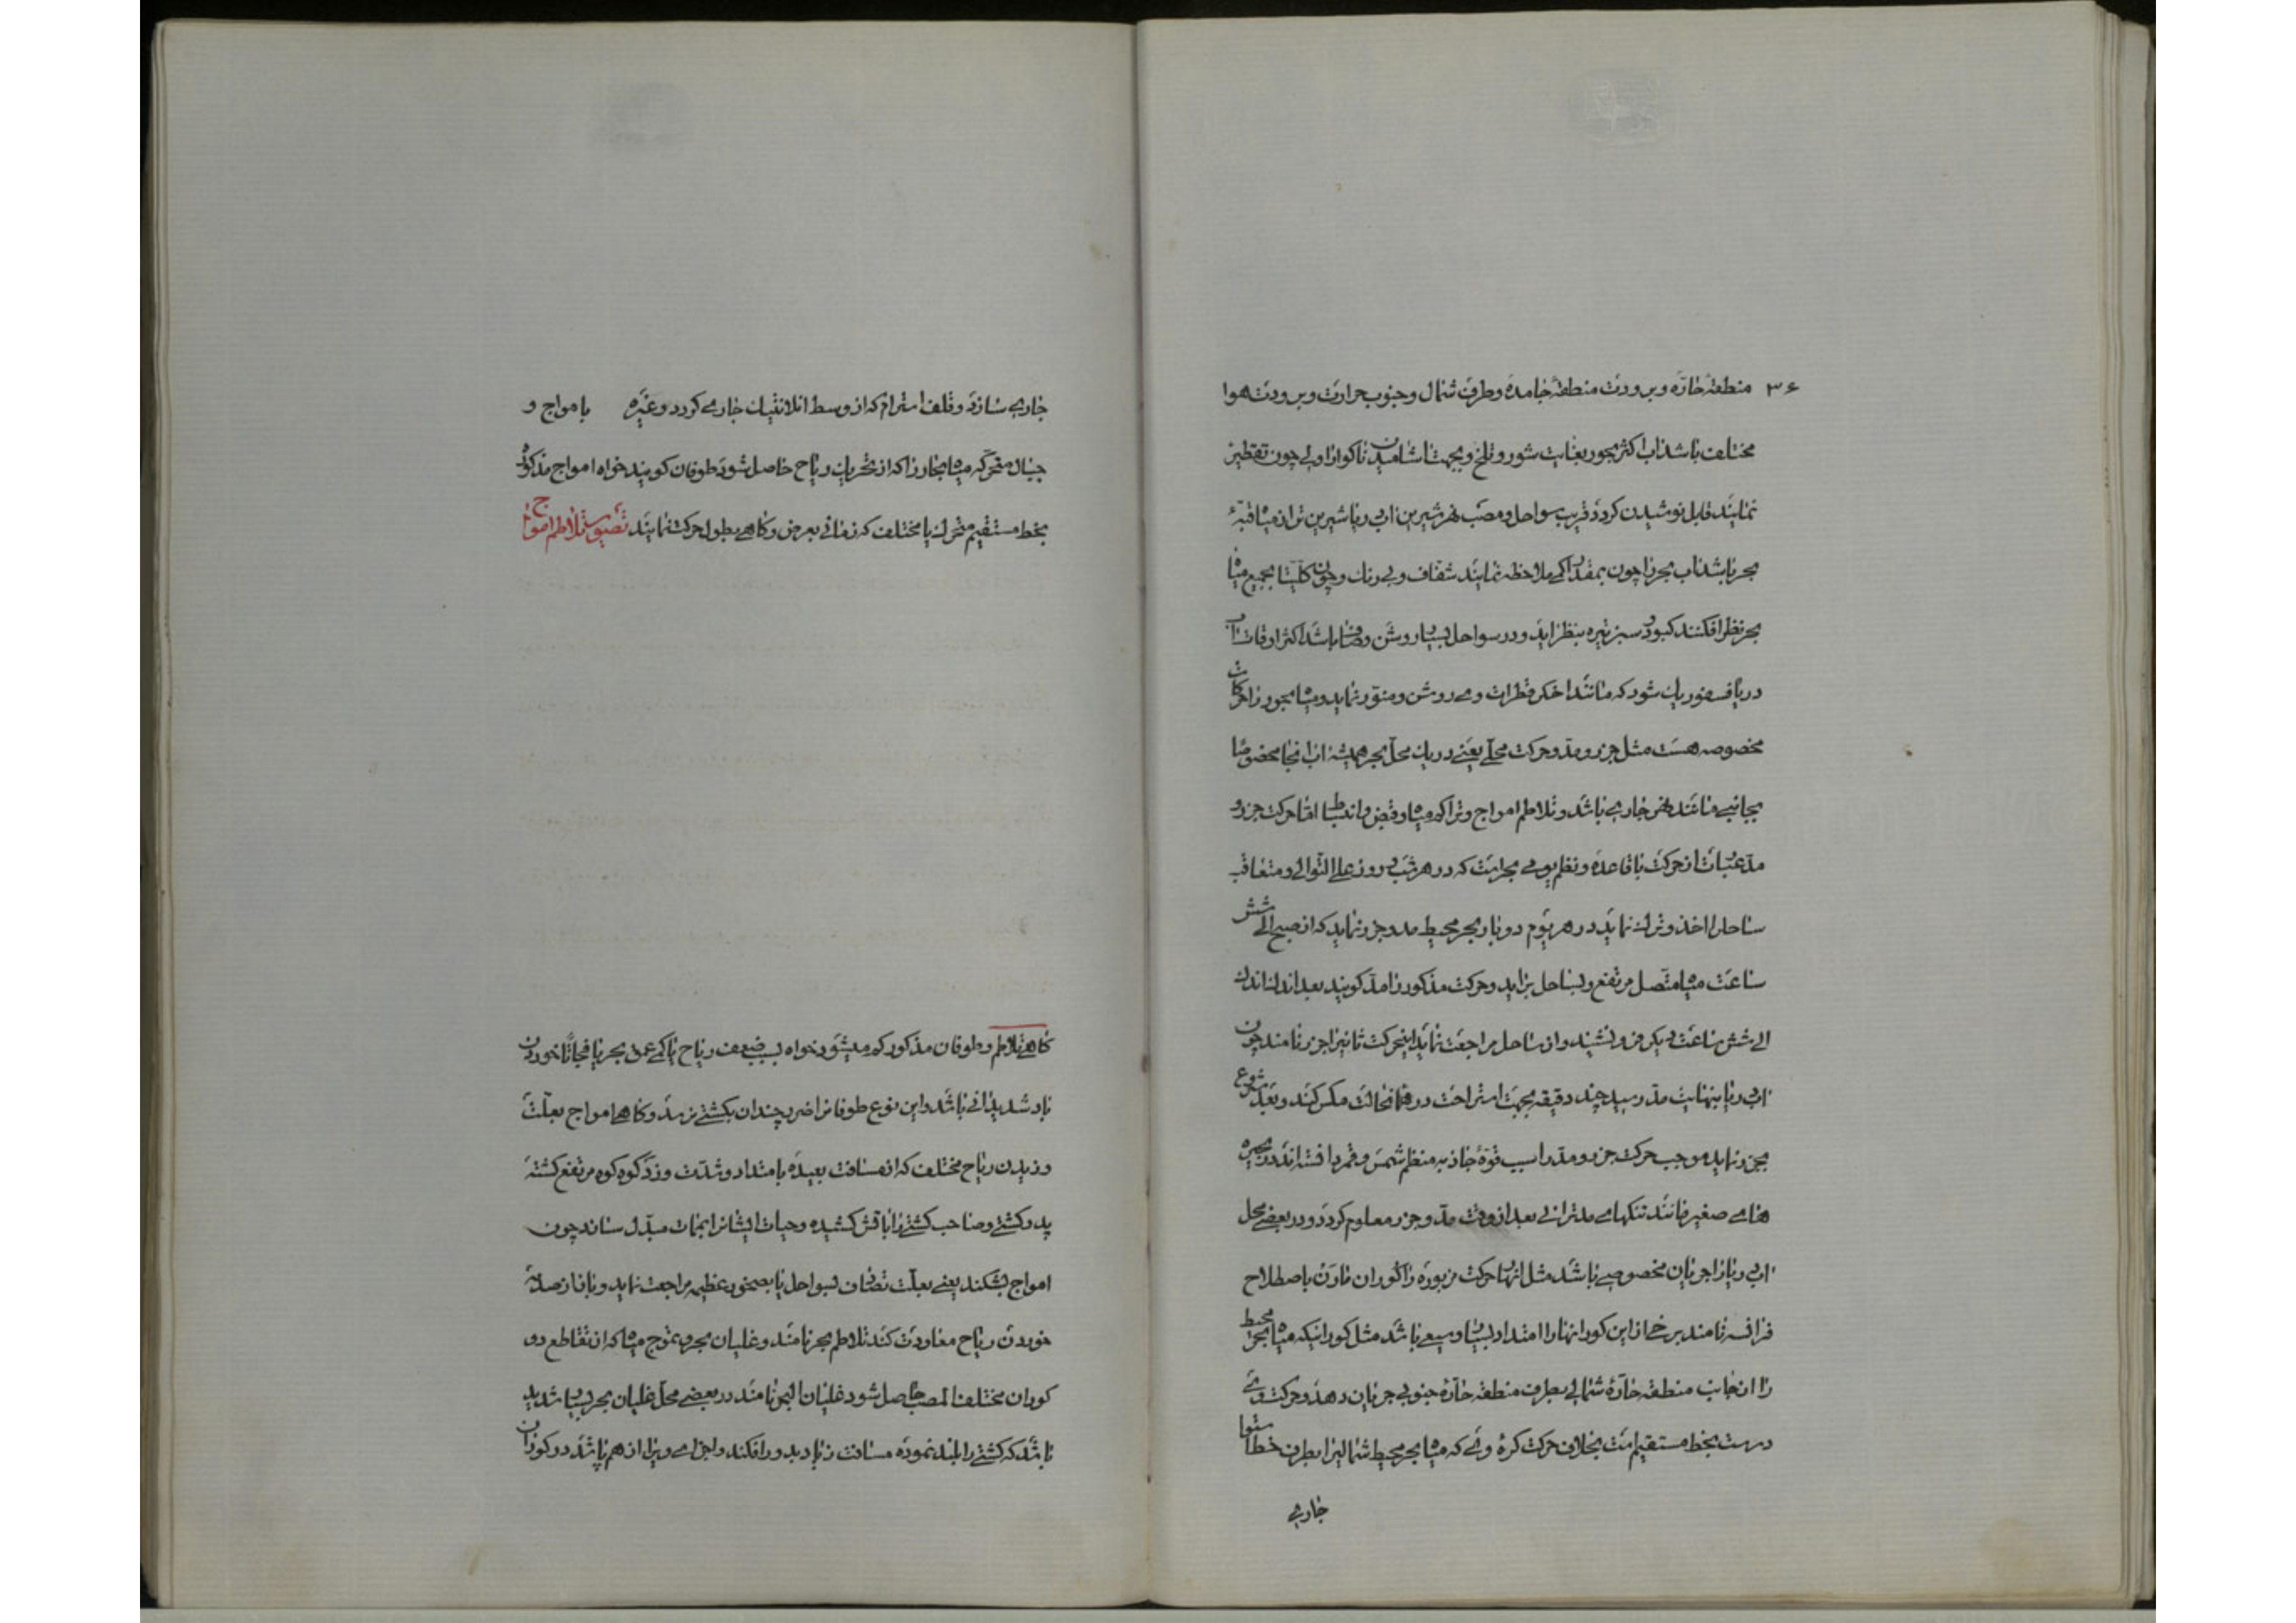 ۳۶ منطقهٔ حارّه و برودت منطقهٔ جامده و طرف شمال و جنوب حرارت و برودت هوا
مختلف باشد اب اکثر بحور بغایت شور و تلخ و بجهت اشامیدن ناکوار اولی چون تقطیر
نمایند قابل نوشیدن کردد قریب سواحل و مصب نهر شیرین اب دریا شیرین تر از میاه قبهٔ
بحر باشد اب بحر را چون بمقدار کمی ملاحظه نمایند شفاف و بی رنك و چون کلیتا بجمیع میاه
بحر نظر افکنند کبود و سبز تیره بنظر اید و در سواحل بسیار روشن و صاف باشد اکثر اوقات اب
دریا فسفوریك شود که مانند اخکر قطرات وی روشن و منوّر نماید و میاه بحور را حرکات
مخصوصه هست مثل جزر و مد و حرکت محلّی یعنی در یك محلّ بحر همیشه اب انجا مخصوصًا
بجانبی مانند نهر جاری باشد و تلاطم امواج و تراکم میاه و قبض و انبساط امّا حرکت جزر و
مدّ عبارت از حرکت با قاعده و نظم یومی بحر است که در هر شب و روز علی التّوالی و متعاقب
ساحل را اخذ و ترك نماید در هر یوم دو بار بحر محیط مد و جزر نماید که از صبح الی شش
ساعت میاه متّصل مرتفع و بساحل براید و حرکت مذکور را مدّ کویند بعد اندك اندك
الی شش ساعت دیکر فرو نشیند و از ساحل مراجعت نماید اینحرکت ثانیرا جزر نامند چون
اب دریا بنهایت مدّ رسید چند دقیقه بجهت استراحت در همانحالت مکس کند و بعد شروع
بجزر نماید موجب حرکت جزر و مد را سبب قوّهٔ جاذبه منظم شمس و قمر دانسته اند در بحیره
های صغیر مانند تنکهای مدترانی بعد از وقت مدّ و جزر معلوم کردد و در بعضی محل
اب دریا را جریان مخصوصی باشد مثل انهار حرکت مزبوره را کوران مارن باصطلاح
فرانسه نامند برخی از این کورانهارا امتداد بسیار وسیع باشد مثل کورانیکه میاه بحر محیط
را از جانب منطقه حارّهٔ شمالی بطرف منطقه حارّهٔ جنوبی جریان دهد و حرکت وی
درست بخط مستقیم است بخلاف حرکت کرهٔ وی که میاه بحر محیط شمالیرا بطرف خط استوا
جاری
جاری سازد و قلف استرام که از وسط اتلانتیك جاری کردد و غیره با مواج و
جبال متحرکه میاه بحار را که از تحریك ریاح حاصل شود طوفان کویند خواه امواج مذکوره
بخط مستقیم متحرك یا مختلف که زمانی بعرض و کاهی بطول حرکت نمایند تصویر تلاطم امواج
کاهی تلاطم و طوفان مذکور کم میشود خواه بسبب ضعف ریاح یا کمی عمق بحر یا فجاتًا خوردن
باد شدید انی باشد و این نوع طوفانرا ضرر چندان بکشتی نرسد و کاهی امواج بعلّت
وزیدن ریاح مختلف که از مسافت بعیده با متداد و شدّت وزد کوه کوه مرتفع کشته
پد و کشتی و صاحب کشتی را باقش کشیده و حیات ایشانرا بممات مبدّل سازد چون
امواج بشکند یعنی بعلّت تصادف بسواحل یا بصخور عظیم مراجعت نماید و باز از صدمهٔ
خوردن ریاح معاودت کند تلاطم بحر نامند و غلیان بحر و تموج میاه که از تقاطع دو
کوران مختلف المصب حاصل شود غلیان البحر نامند در بعضی محلّ غلیان بحر بسیار شدید
باشد که کشتی را بلند نموده مسافت زیاد بدور افکند و اجزای ویرا از هم پاشد در کوران